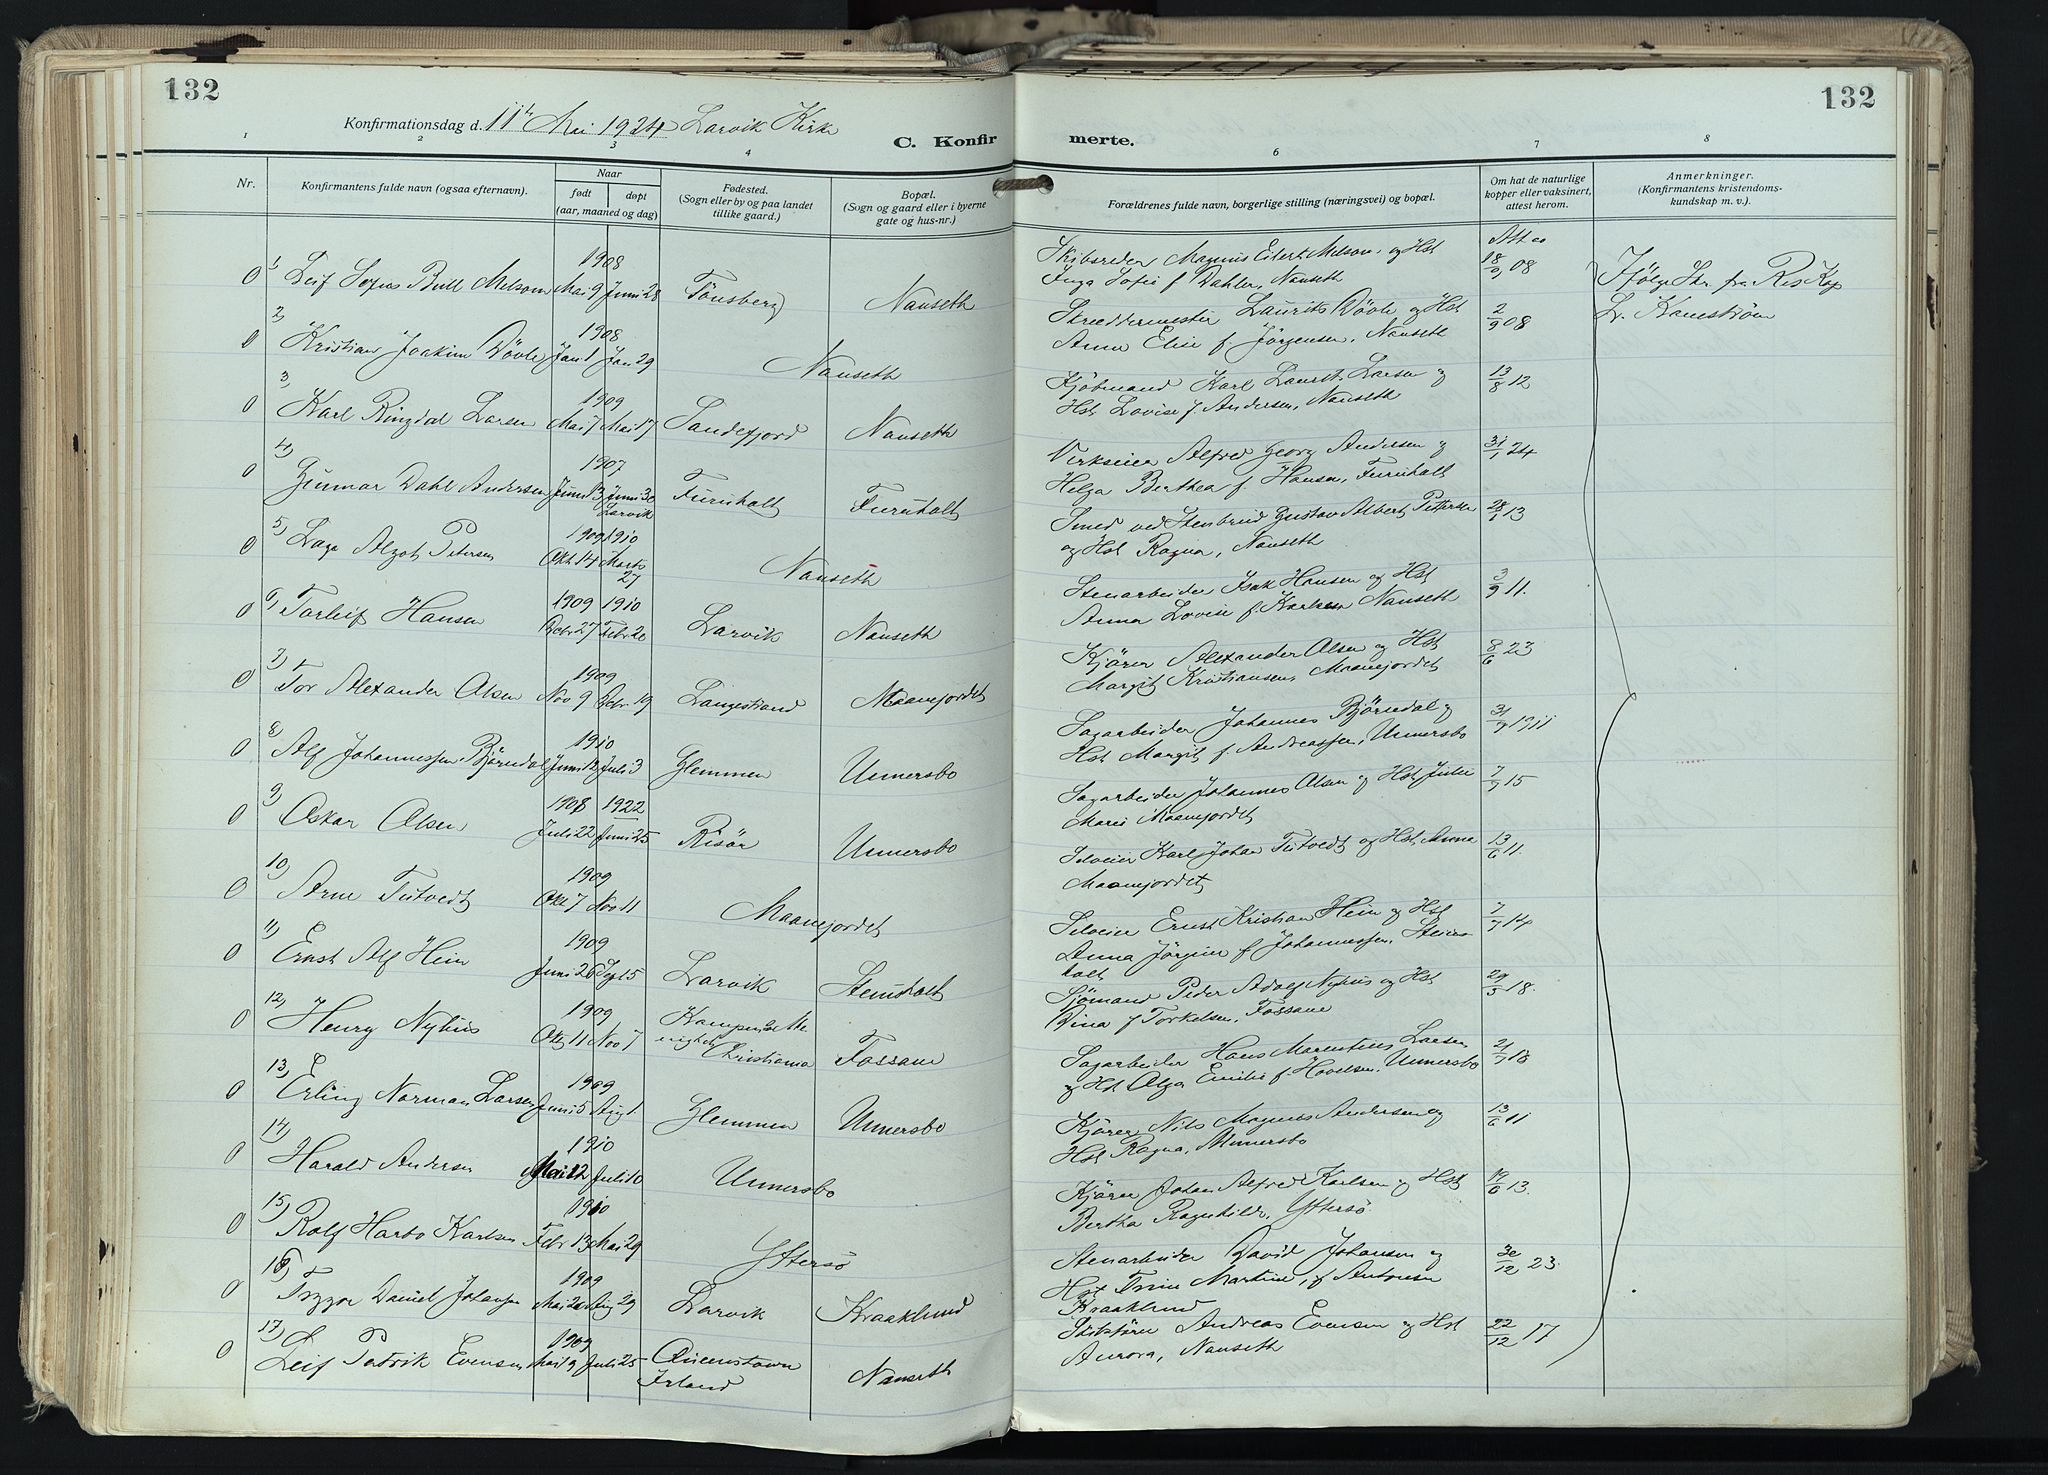 132
Konfirmationsdag d. 11te Mai 1924 Larvik Kirke
C. Konfir
1 2 3 4
Nr.
Konfirmantens fulde navn (ogsaa efternavn).
Naar
født døpt
(aar, maaned og dag)
Fødested.
(Sogn eller by og paa landet
tillike gaard.)
Bopæl.
(Sogn og gaard eller i byerne
gate og hus-nr.)
1908
0 1) Leif Sofus Bull Melsom Mai 9 Juni 28 Tönsberg Nanseth
1908
0 2) Kristian Joakim Dövle Jan 1 Jan 29 Nanseth
1909
0 3) Karl Ringdal Larsen Mai 7 Mai 17 Sandefjord Nanseth
1907
0 4) Gunnar Dahl Andersen Juni 13 Juni 30 Furuholt Furuholt
Larvik
1909 1910
0 5) Algot Petersen Okt 14 Marts
27 Nanseth
1909 1910
0 6) Torleif Hansen Debr 27 Febr 20 Larvik Nanseth
1909
0 7) Tor Alexander Olsen Nov 9 Debr 19 Langestrand Maanejordet
1910
0 8) Alf Johannessen Björndal Juni 12 Juli 3 Glemmen Unnersbo
1908 1922
0 9) Oskar Olsen Juli 22 Juni 25 Risör Unnersbo
1909
0 10) Arne Tutvedt Okt 7 Nov 11 Maanejordet
1909
0 11) Ernst Alf Hein Juni 26 Sept 5 Larvik Stensholt
1909
0 12) Henry Nyhus Okt 11 Nov 7 Kampens Me
nighet
Christiania Fossane
1909
0 13) Erling Norman Larsen Juni 5 Aug 1 Glemmen Unnersbo
1910
0 14) Harald Andersen Mai 12 Juli 10 Unnersbo
1910
0 15) Rolf Harbo Karlsen Febr 13 Mai 29 Yttersö
1909
0 16) Tryggve Daniel Johansen Mai 20 Aug 29 Larvik Kraaklund
1909
0 17) Leif Patrik Evensen Mai 9 Juli 25 Queenstown
Irland Nanseth
132
merte.
6 7 8
Forældrenes fulde navn, borgerlige stilling (næringsvei) og bopæl.
Om hat de naturlige
kopper eller vaksinert,
attest herom.
Anmerkninger.
(Konfirmantens kristendoms-
kundskap m. v.)
Skibsreder Magnus Eilert Melsom og Hst
Inga Sofie f Dahler, Nanseth
18/9 08
Ifölge Skr. fra Res Kap
Skreddermester Laurits Dövle og Hst
Anna Elise f Jörgensen, Nanseth
2/9 08
Kjöbmand Karl Laurits Larsen og
Hst Lovise f. Andersen, Nanseth
13/8 12
Verkseier Alfred Georg Andersen og
Helga Berthea f Hansen, Furuholt
31/1 24
Smed ved Stenbrud Gustav Albert Pettersen
og Hst Ragna, Nanseth
28/1 13
Stenarbeider Isak Hansen og Hst
Anna Lovise f. Karlsen Nanseth
3/9 11.
Kjörer Alexander Olsen og Hst
Margit Kristiansen, Maanejordet
8/6 23
Sagarbeider Johannes Björndal og
Hst Margit f. Andreassen, Unnersbo
31/7 1911
Sagarbeider Johannes Olsen og Hst Julie
Marie Maanejordet
7/9 15
Selveier Karl Johan Tutvedt og Hst Anna
Maanejordet
13/6 11.
Selveier Ernst Kristian Hein og Hst
Anna Jörgine f Johannessen, Stens
holt
7/7 14
Sjömand Peder Adolf Nyhus og Hst
Dina f Torkelsen, Fossane
29/5 18.
Sagarbeider Hans Marentius Larsen
og Hst Olga Emilie f. Hovelsen, Unnersbo
21/7 18
Kjörer Nils Magnus Andersen og
Hst Ragna, Unnersbo
13/6 11
Kjörer Johan Alfred Karlsen og Hst
Bertha Ragnhilde, Yttersö.
19/6 13.
Stenarbeider David Johansen og
Hst Trine Martine, f Antonsen
Kraaklund
30/12 23.
Skibsförer Andreas Evensen og Hst
Aurora, Nanseth
22/12 17